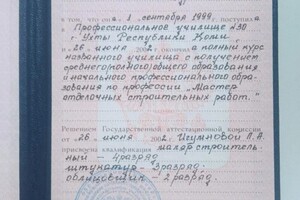 в том, что он а 1 сентября 1999 г. поступил а
в Профессиональное училище №30
г. Ухты Республики Коми
и «26» июня 2002 г. окончил а полный курс
названного училища с получением
среднего (полного) общего образования
и начального профессионального обра-
зования по профессии „Мастер
отделочных строительных работ."
Решением Государственной аттестационной комиссии
от «26» июня 2002 г. Игумновой Л.А.
присвоена квалификация маляр строитель-
ный – 4 разряд
штукатур – 3 разряд
облицовщик – 2 разряд.